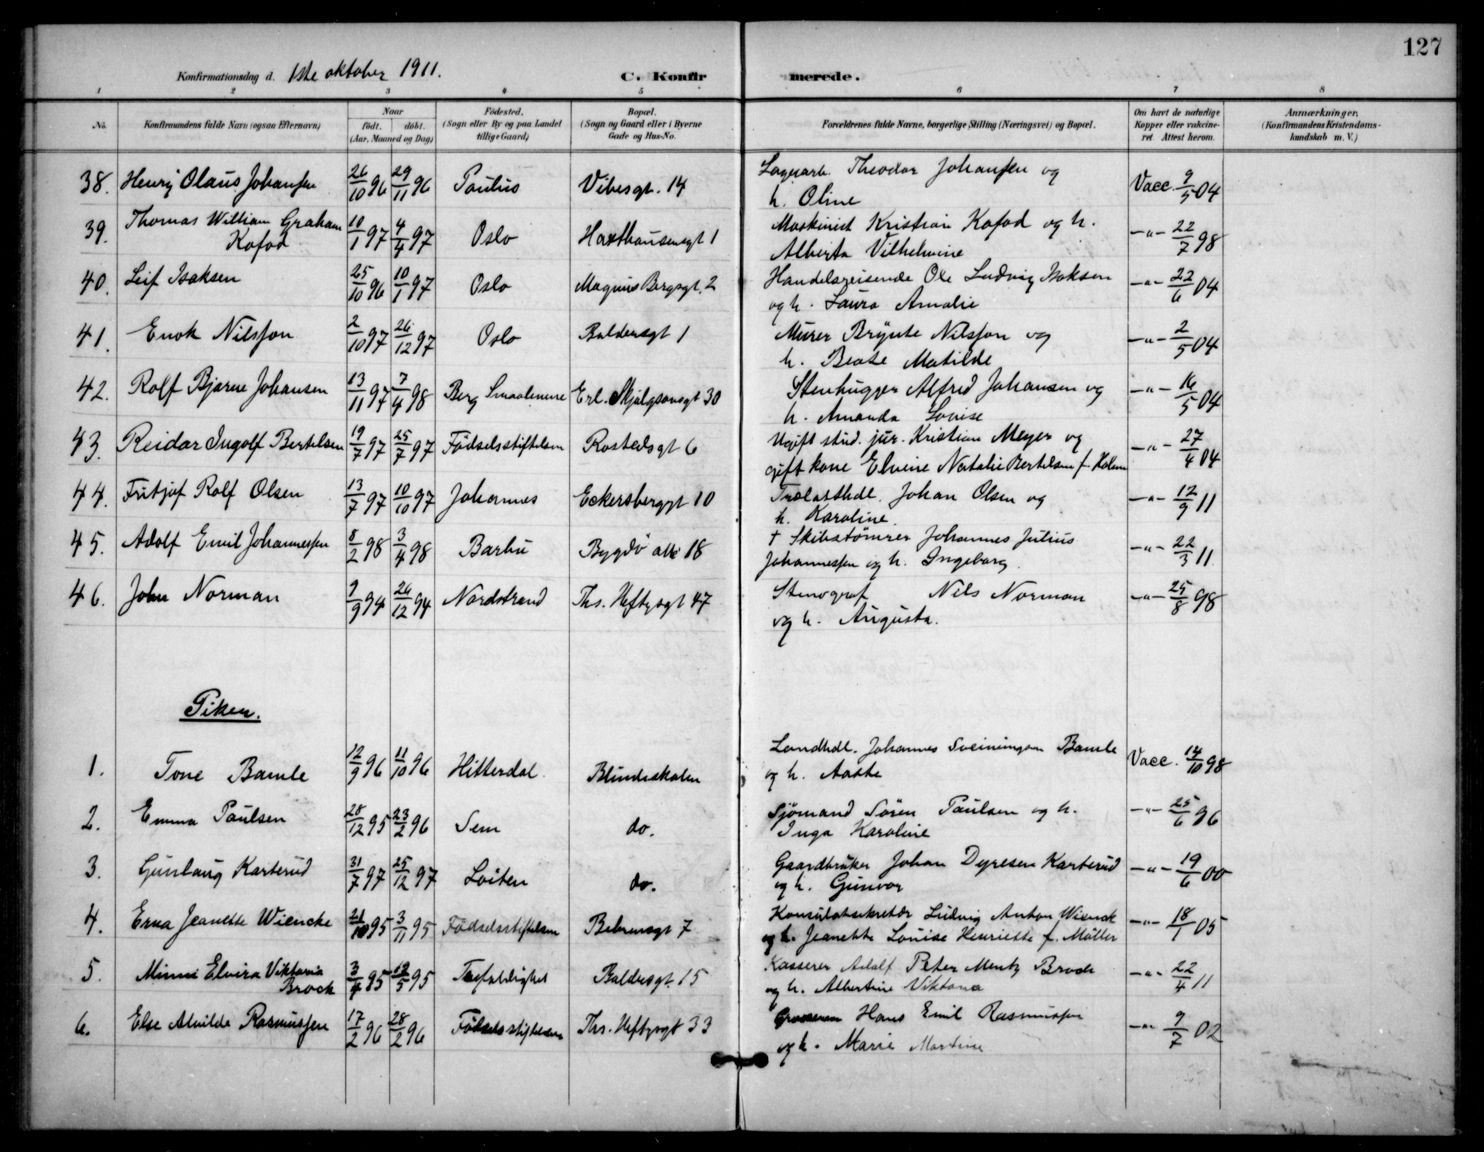 127
Konfirmationsdag d. 1ste oktober 1911. C. Konfirmerede.
1 2 3 4 5 6 7 8
No. Konfirmandens fulde Navn (ogsaa Efternavn) Naar født. døbt. (Aar, Maaned og Dag) Fødested. (Sogn eller By og paa Landet tillige Gaard) Bopæl. (Sogn og Gaard eller i Byerne Gade og Hus-No. Forældrenes fulde Navne, borgerlige Stilling (Næringsvei) og Bopæl. Om havt de naturlige Kopper eller vakcineret. Attest herom. Anmærkninger. (Konfirmandens Kristendomskundskab m. V.)
38. Henrij Olaus Johansen 26/10 96 29/11 96 Paulus Vibesgt. 14 Lagerarb. Theodor Johansen og Vacc. 9/5 04
h. Oline
39. Thomas William Graham 10/1 97 4/4 97 Oslo Haxthausensgt 1 Maskinist Kristian Kofod og h. -"- 22/7 98
Kofod Alberta Vilhelmine
40. Leif Isaksen 25/10 96 10/1 97 Oslo Magnus Bergsgt. 2 Handelsreisende Ole Ludvig Isaksen -"- 22/6 04
og h. Laura Amalie
41. Enok Nilsson 2/10 97 26/12 97 Oslo Baldersgt 1 Murer Brynte Nilsson og -"- 2/5 04
h. Beate Matilde
42. Rolf Bjarne Johansen 13/11 97 7/4 98 Berg Smaalenene Erl. Skjalgsonsgt 30 Stenhugger Alfred Johansen og -"- 16/5 04
h. Amanda Lovise
43. Reidar Ingolf Bertelsen 19/7 97 25/7 97 Fødselsstiftelsen Rostedsgt 6 Ugift stud. jur. Kristian Meyer og -"- 27/4 04
gift kone Elvine Natalie Bertelsen f. Holm
44. Fritjof Rolf Olsen 13/7 97 10/10 97 Johannes Eckersbergsgt 10 Trælasthdl. Johan Olsen og -"- 12/9 11
h. Karoline.
45. Adolf Emil Johannessen 8/2 98 3/4 98 Barbu Bygdø allé 18 + Skibstømrer Johannes Julius -"- 22/3 11
Johannessen og h. Ingeborg.
46. John Norman 7/9 94 26/12 94 Nordstrand Ths. Heftyesgt 47 Stenograf Nils Norman -"- 25/8 98
og h. Augusta.
Piker.
1. Tone Bamle 12/9 96 11/10 96 Hitterdal. Blindeskolen Landhdl. Johannes Sveiningsen Bamle Vacc. 14/10 98
og h. Aaste
2. Emma Paulsen 28/12 95 23/2 96 Sem do. Sjømand Søren Paulsen og h. -"- 25/6 96
Inga Karoline
3. Gunlaug Karterud 31/7 97 25/12 97 Løiten do. Gaardbruker Johan Dyresen Karterud -"- 19/6 00
og h. Gunvor
4. Erna Jeanette Wiencke 21/10 95 3/11 95 Fødselsstiftelsen Behrensgt 7 Konsulatsekretær Ludvig Anton Wiencke -"- 18/1 05
og h. Jeanette Louise Henriette f. Møller
5. Minni Elvira Viktoria 3/4 95 12/5 95 Trefoldighet Baldersgt. 15 Kasserer Adolf Peter Mentz Brock -"- 22/4 11
Brock og h. Albertine Viktoria
6. Else Alvilde Rasmussen 17/2 96 28/2 96 Fødselsstiftelsen Ths. Heftyesgt 33 Hans Emil Rasmussen -"- 9/7 02
og h. Marie Martine